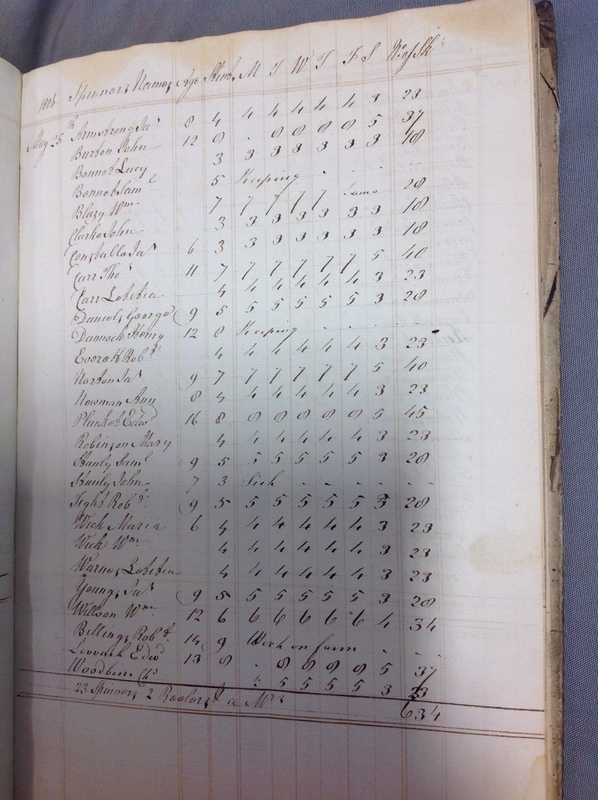 1808 Spinners Names Age Stint M T W T F S No of Sks
May 25th Armstrong Jas 8 4 4 4 4 4 4 3 23
Burton John 12 8 - 8 8 8 8 5 37
Bennet Lucy 3 3 3 3 3 3 3 18
Bennet Saml 5 Keeping - - -
Blazy Wm 7 7 7 7 7 Lame 28
Clarke John 3 3 3 3 3 3 3 18
Constable Jas 6 3 3 3 3 3 3 3 18
Carr Thos 11 7 7 7 7 7 7 5 40
Carr Lebibia 4 4 4 4 4 4 3 23
Daniels George 9 5 5 5 5 5 5 3 28
Dannock Henry 12 8 Keeping - - - -
Everett Robt 4 4 4 4 4 4 3 23
Norton Jas 9 7 7 7 7 7 7 5 40
Newman Ann 8 4 4 4 4 4 4 3 23
Plunket Edwd 16 8 8 8 8 8 8 5 45
Robinson Mary 4 4 4 4 4 4 3 23
Stanly Saml 9 5 5 5 5 5 5 3 28
Stanly John 7 3 Sick - - - - -
Robt 9 5 5 5 5 5 5 3 28
Wick Maria 6 4 4 4 4 4 4 3 23
Wick Wm 4 4 4 4 4 4 3 23
Warnes Lebibia 4 4 4 4 4 4 3 23
Youngs Jas 9 5 5 5 5 5 5 3 28
Willson Wm 12 6 6 6 6 6 6 4 34
Billings Robt 14 9 Work on farm - -
Edwd 13 8 - 8 8 8 8 5 37
Woodbine - 5 5 5 5 3 23
23 Spinners 2 Reelers & a Mrs 634